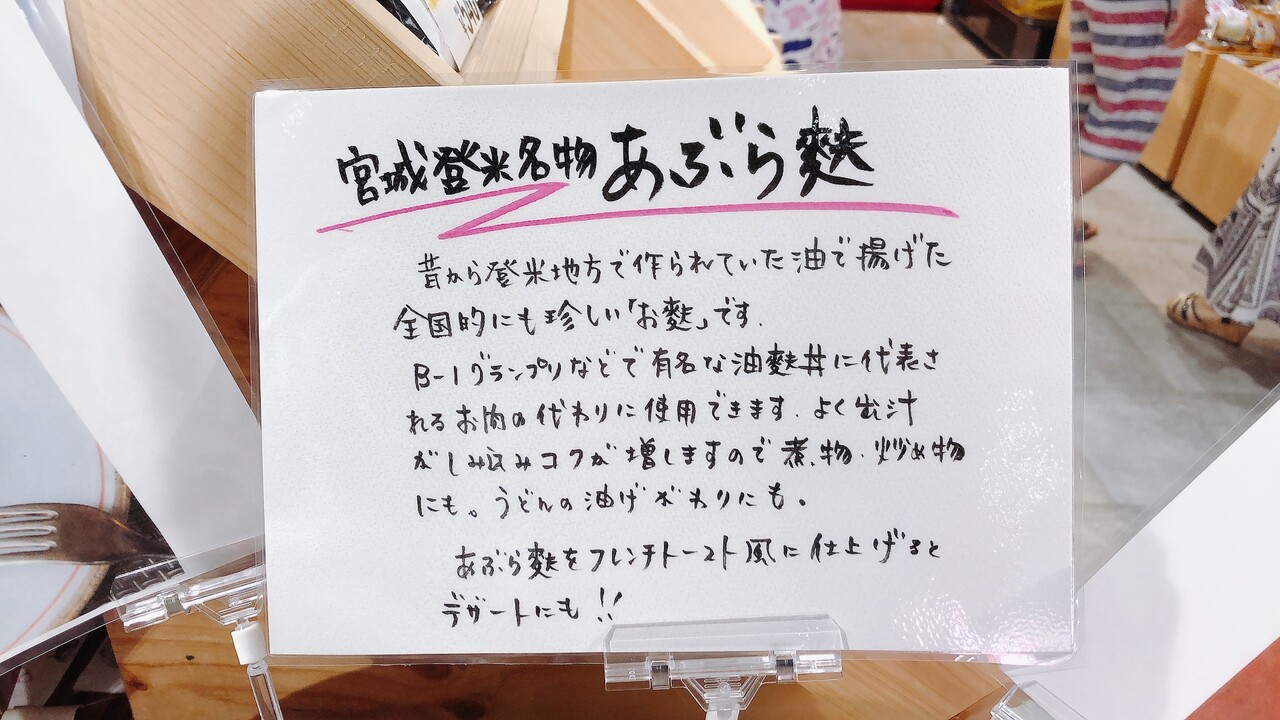 宮城登米名物あぶら麩
昔から登米地方で作られていた油で揚げた
全国的にも珍しい「お麩」です.
B-1グランプリなどで有名な油麩丼に代表さ
れるお肉の代わりに使用できます. よく出汁
がしみ込みコクが増しますので煮物・炒め物
にも。うどんの油げがわりにも。
あぶら麩をフレンチトースト風に仕上げると
デザートにも!!